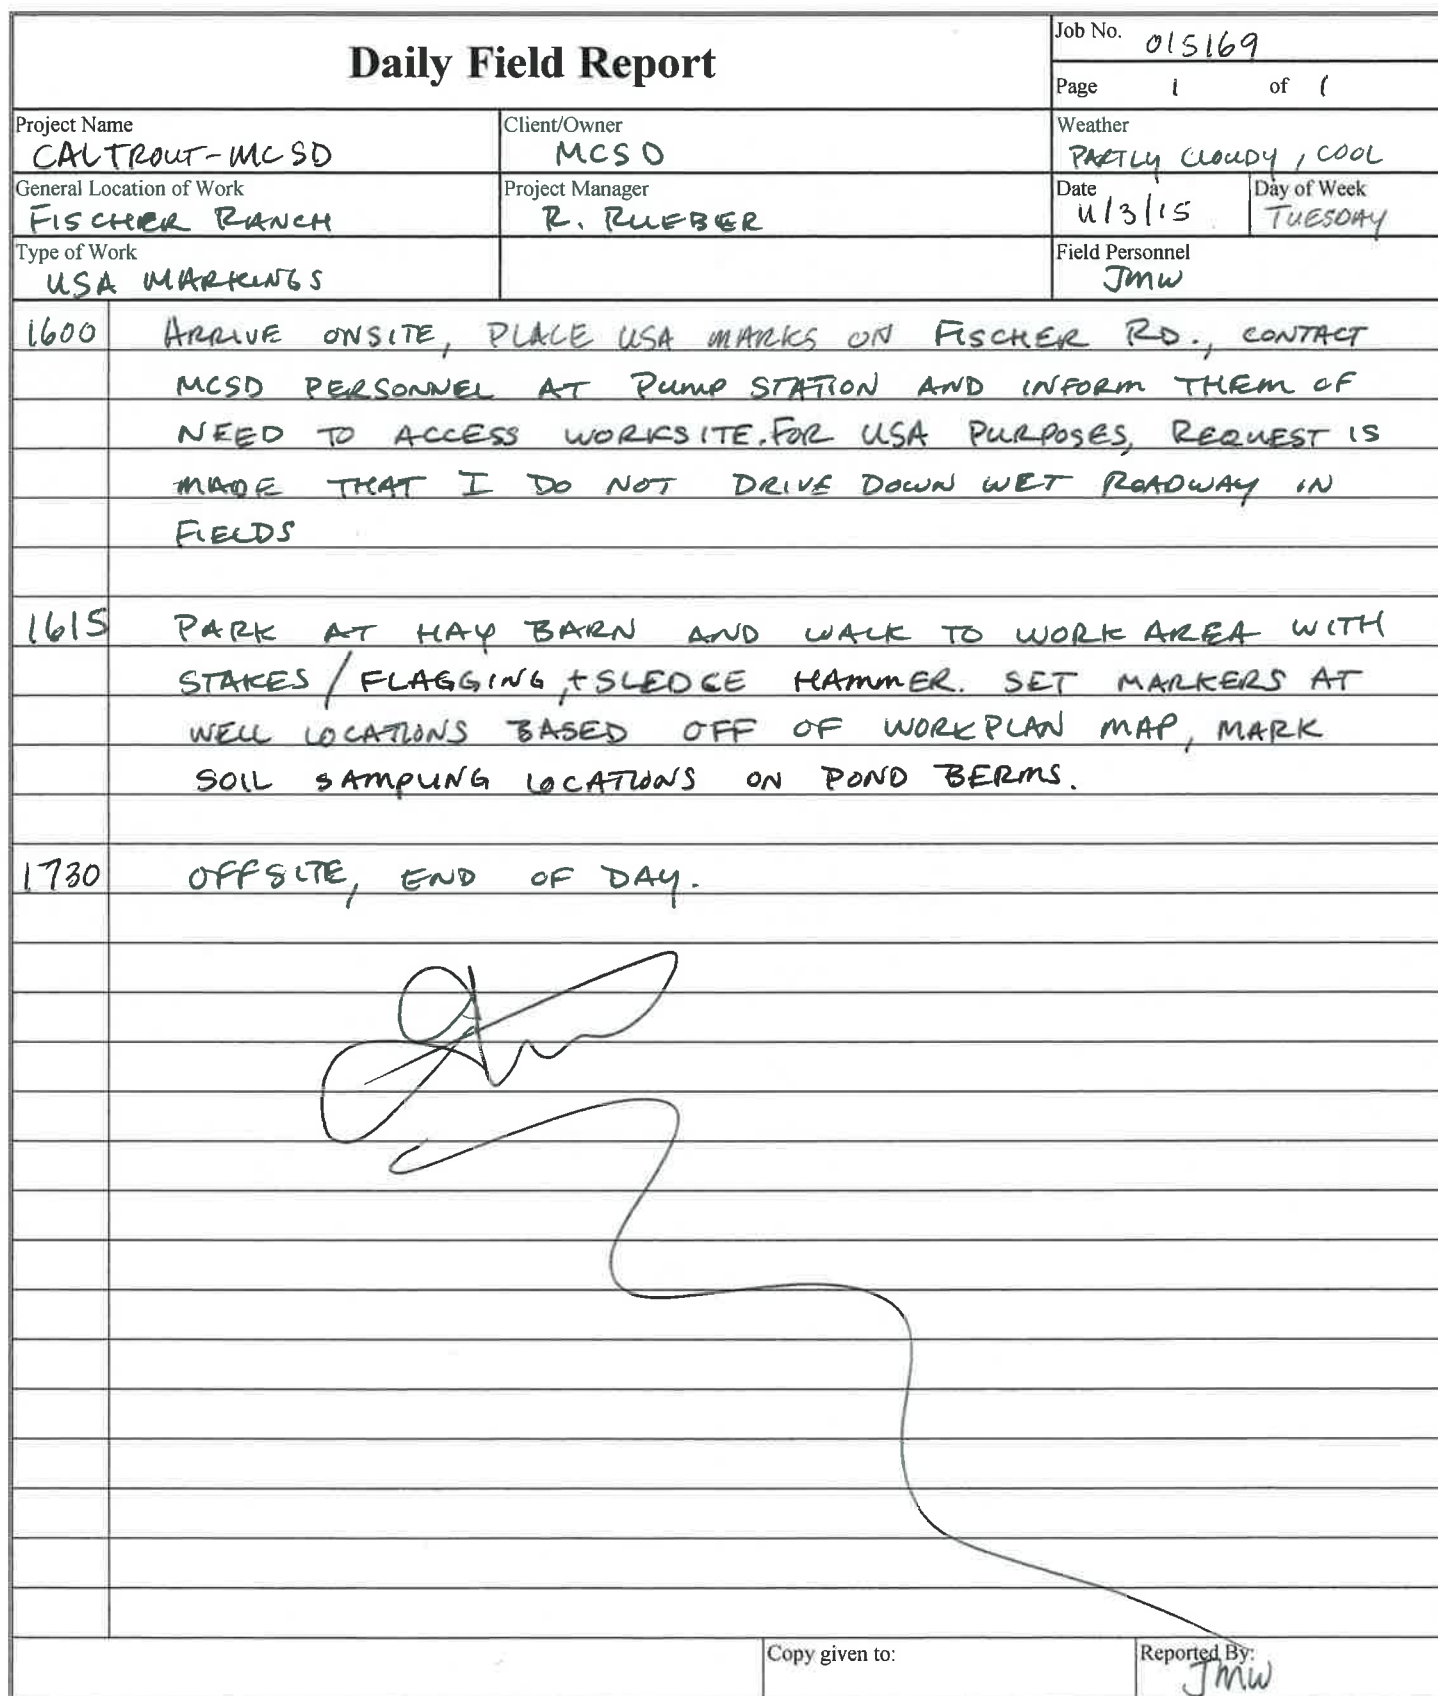 Daily Field Report
Job No. 015169
Page 1 of 1
Project Name
CALTROUT-MCSD
Client/Owner
MCSD
Weather
PARTLY CLOUDY, COOL
General Location of Work
FISCHER RANCH
Project Manager
R. RUEBER
Date
11/3/15
Day of Week
TUESDAY
Type of Work
USA MARKINGS
Field Personnel
JMW
1600 ARRIVE ONSITE, PLACE USA MARKS ON FISCHER RD., CONTACT
MCSD PERSONNEL AT PUMP STATION AND INFORM THEM OF
NEED TO ACCESS WORKSITE. FOR USA PURPOSES, REQUEST IS
MADE THAT I DO NOT DRIVE DOWN WET ROADWAY IN
FIELDS
1615 PARK AT HAY BARN AND WALK TO WORK AREA WITH
STAKES / FLAGGING, + SLEDGE HAMMER. SET MARKERS AT
WELL LOCATIONS BASED OFF OF WORKPLAN MAP, MARK
SOIL SAMPLING LOCATIONS ON POND BERMS.
1730 OFFSITE, END OF DAY.
Copy given to:
Reported By:
JMW